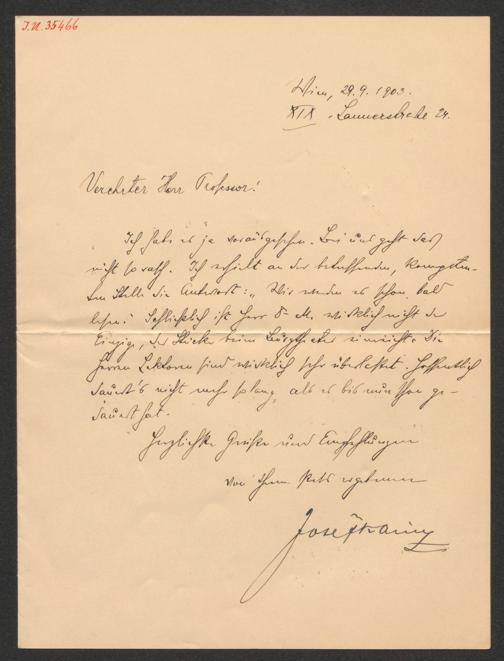 I.N. 35466
Wien, 29.9.1903.
XIX. Lannerstraße 24.
Verehrter Herr Professor!
Ich habe es ja vorausgesehen. Bei uns geht das
nicht so rasch. Ich erhielt an der betreffenden, kompeten-
ten Stelle die Antwort: „Wir werden es schon bald
lesen." Schließlich ist Herr D. M. wirklich nicht der
Einzige, der Stücke beim Burgtheater einreicht. Die
Herren Lektoren sind wirklich sehr überlastet. Hoffentlich
dauert's nicht mehr so lang, als es bis nun schon ge-
dauert hat.
Herzlichste Grüße und Empfehlungen
von Ihrem stets ergebenen
Josef Kainz